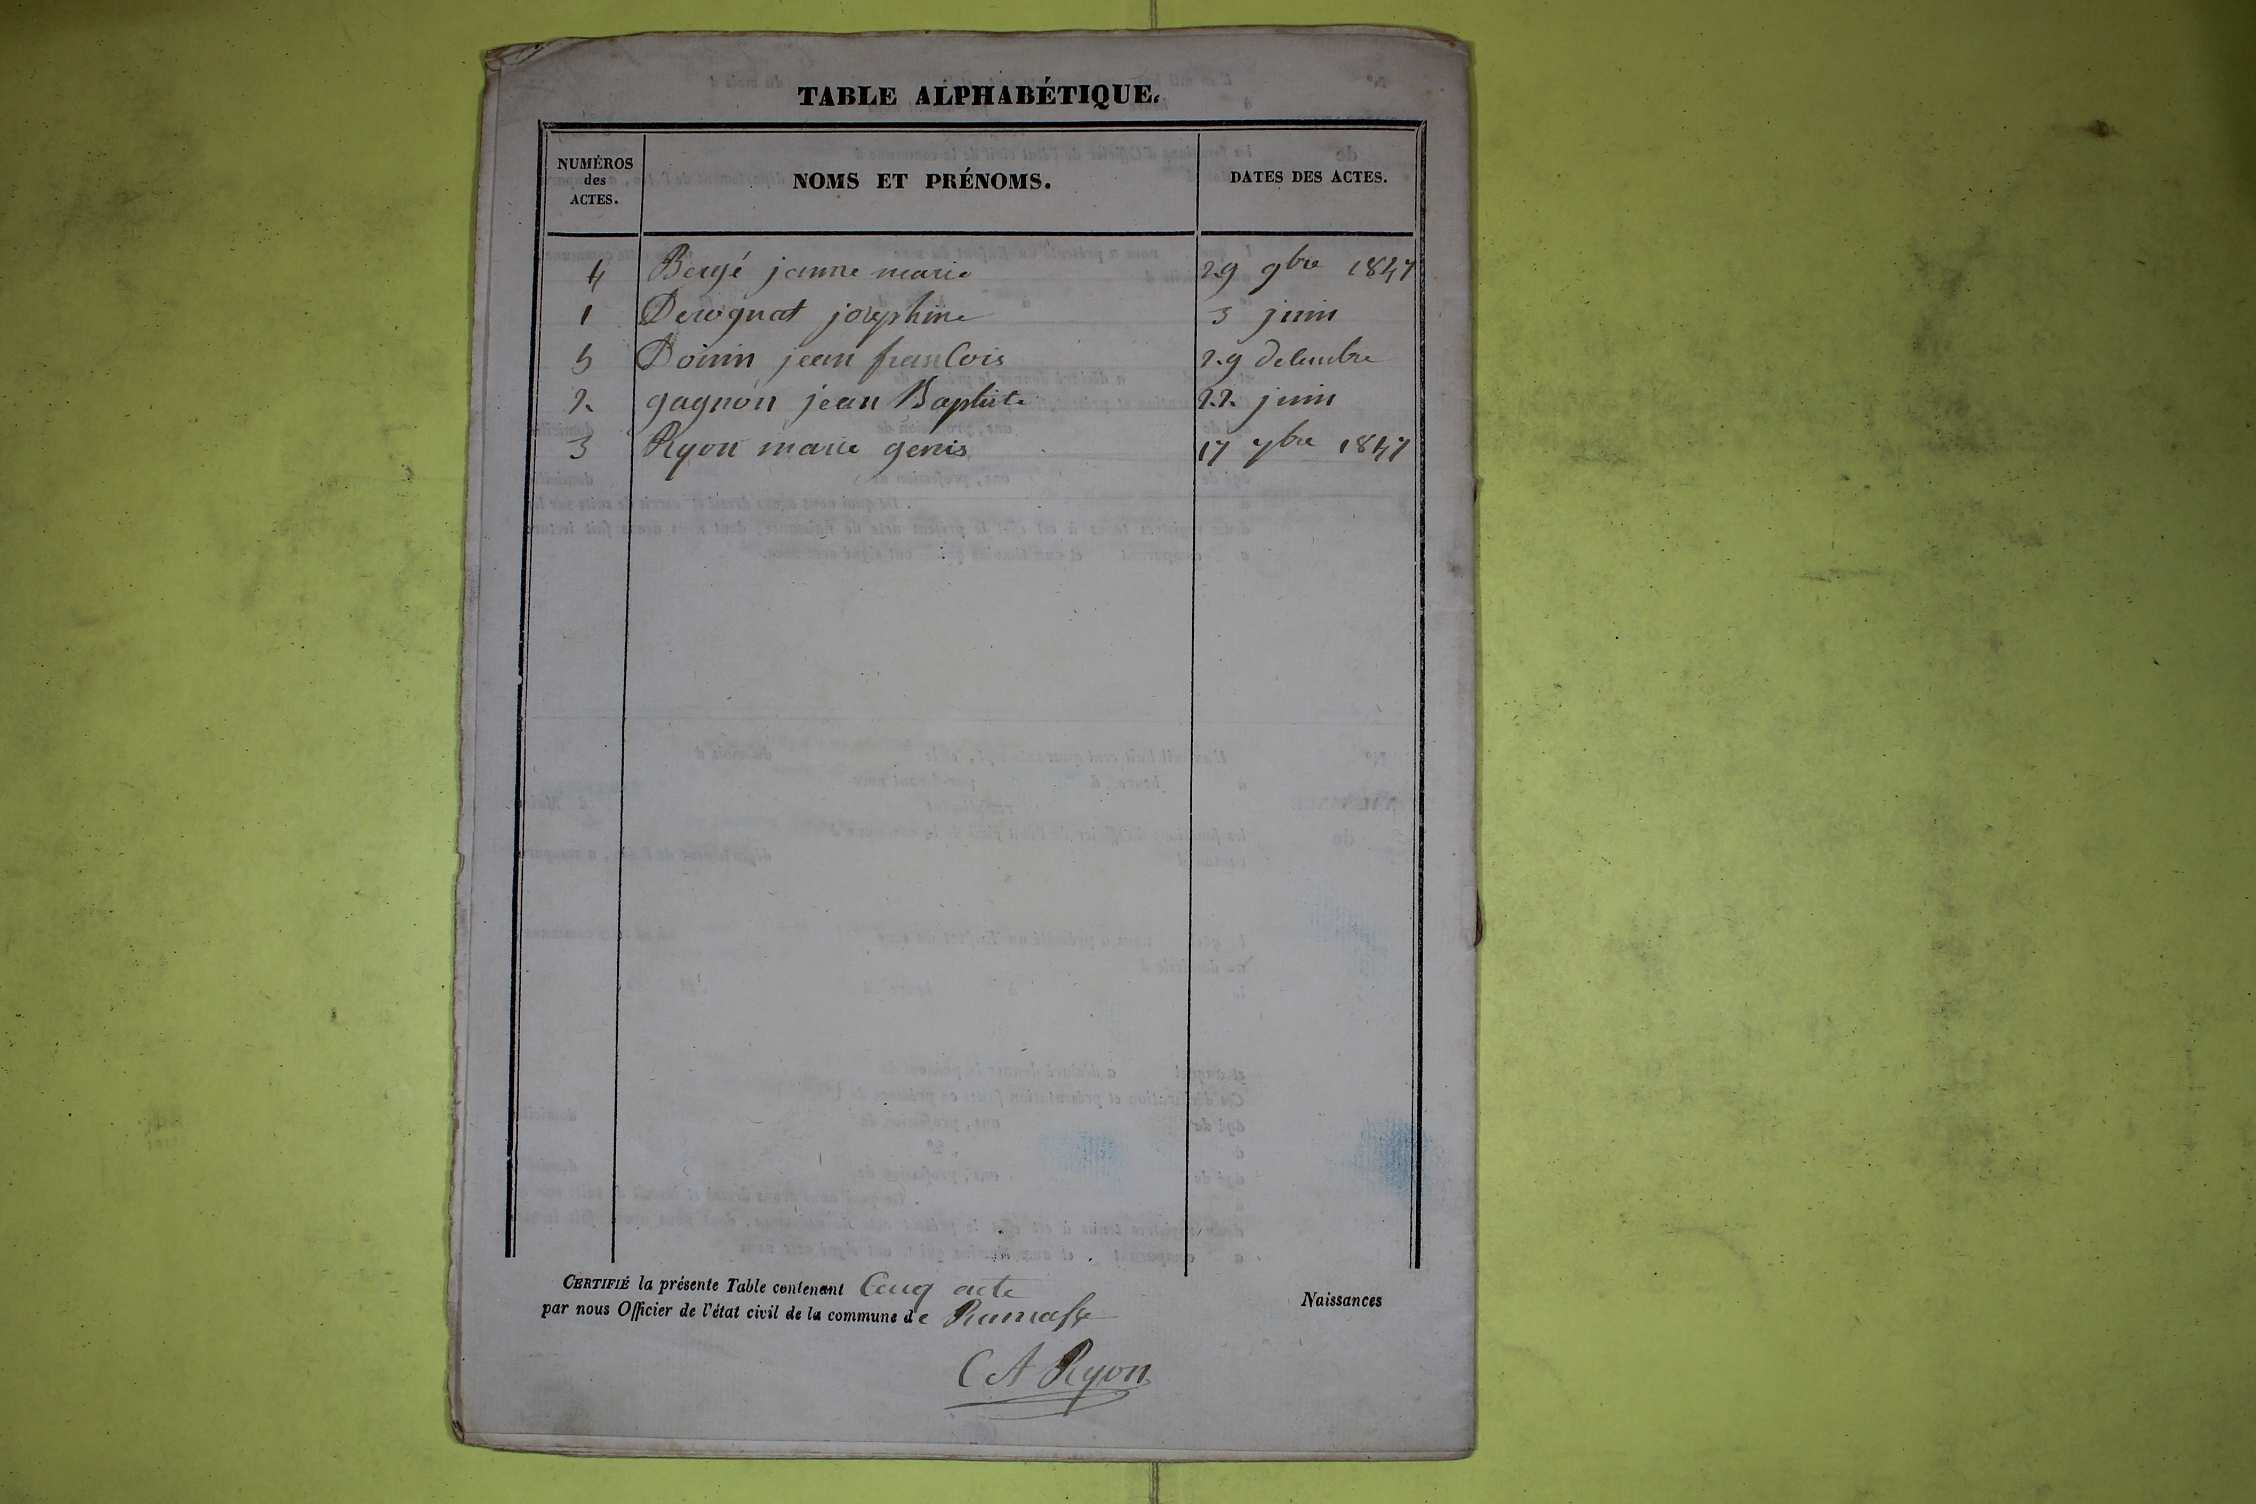 TABLE ALPHABÉTIQUE.
NUMÉROS des ACTES. NOMS ET PRÉNOMS. DATES DES ACTES.
4 Bergé janne marie 29 9bre 1847
1 Derognat josephine 3 juin
5 Doinin jean francois 29 decembre
2 gagnon jean Baptiste 22 juin
3 Ryon marie genis 17 7bre 1847
CERTIFIÉ la présente Table contenant Cinq acte Naissances
par nous Officier de l'état civil de la commune de Ramasse
C A Ryon